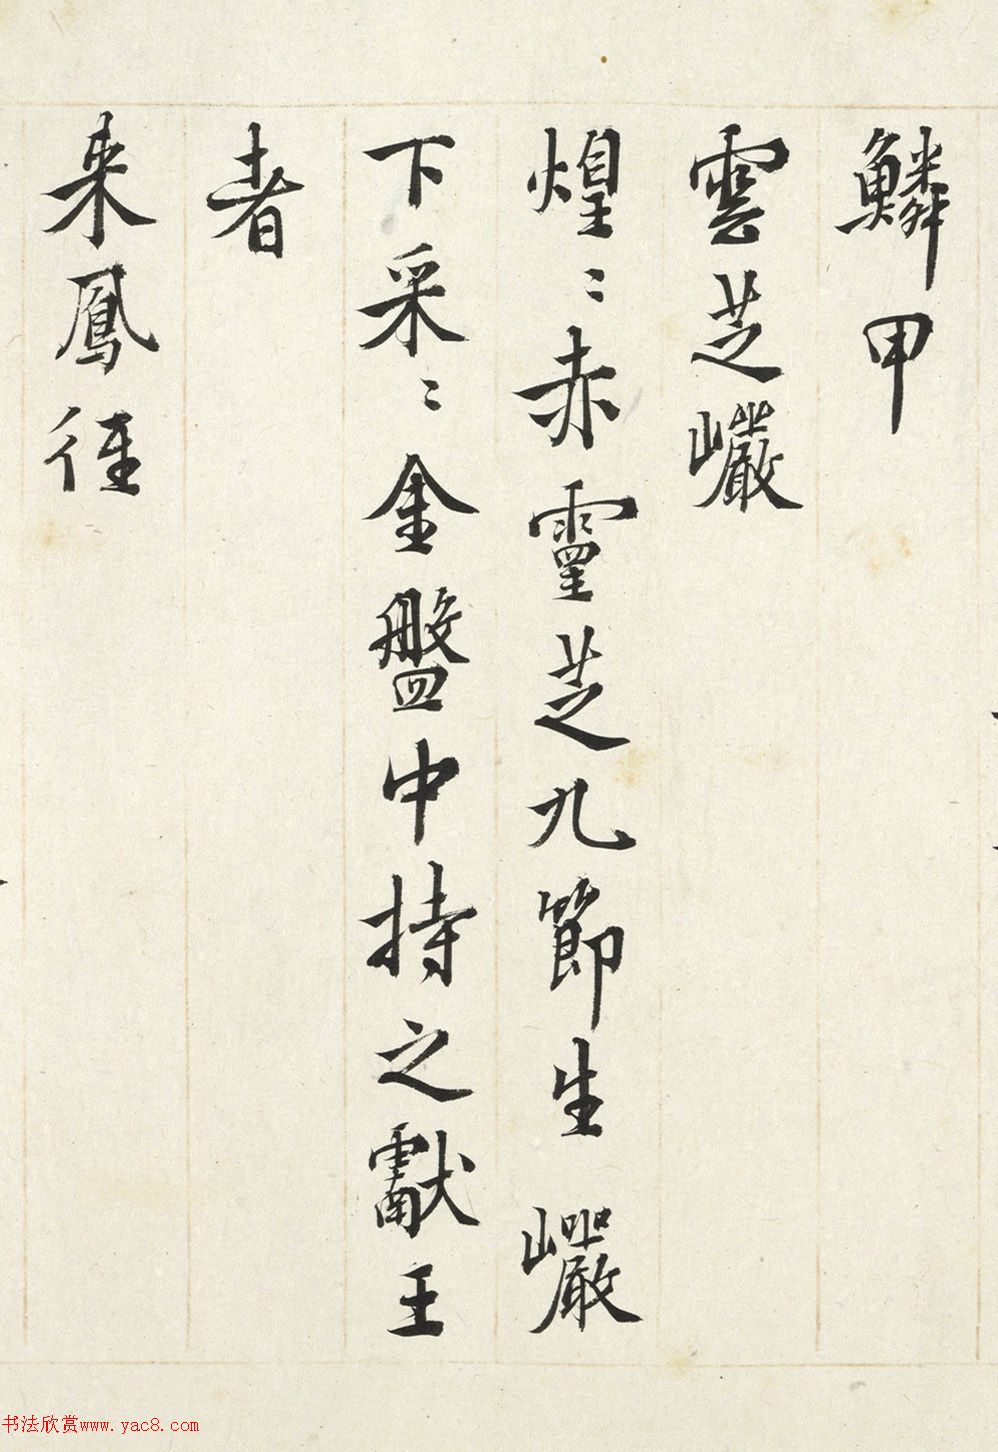 鱗甲
雲芝巖
煌〻赤靈芝九節生巖
下采〻金盤中持之獻王
者
来鳳徑
书法欣赏www.yac8.com